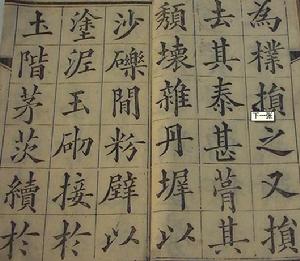 為樸損之又損
去其泰甚葺其
頹壞雜丹墀以
沙礫間粉壁以
塗泥玉砌接於
土階茅茨續於
下一张